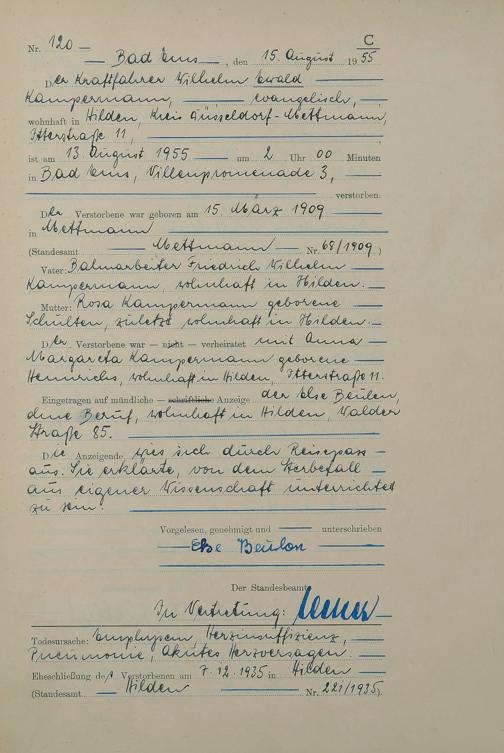 C
Nr. 120 —
Bad Ems, den 15. August 1955
Der Kraftfahrer Wilhelm Ewald
Kampermann, evangelisch,
wohnhaft in Hilden, Kreis Düsseldorf-Mettmann,
Itterstraße 11,
ist am 13. August 1955 um 2 Uhr 00 Minuten
in Bad Ems, Villenpromenade 3,
verstorben.
Der Verstorbene war geboren am 15. März 1909
in Mettmann
(Standesamt Mettmann Nr. 68/1909.)
Vater: Bahnarbeiter Friedrich Wilhelm
Kampermann, wohnhaft in Hilden.
Mutter: Rosa Kampermann geborene
Schulten, zuletzt wohnhaft in Hilden.
Der Verstorbene war — nicht — verheiratet mit Anna
Margareta Kampermann geborene
Heinrichs, wohnhaft in Hilden, Itterstraße 11.
Eingetragen auf mündliche — schriftliche Anzeige der Else Beulen,
ohne Beruf, wohnhaft in Hilden, Walder
Straße 85.
Die Anzeigende wies sich durch Reisepass
aus. Sie erklärte, von dem Sterbefall
aus eigener Wissenschaft unterrichtet
zu sein.
Vorgelesen, genehmigt und unterschrieben
Else Beulen
Der Standesbeamte
In Vertretung:
Todesursache: Emphysem, Herzinsuffizienz,
Pneumonie, Akutes Herzversagen.
Eheschließung des Verstorbenen am 7.12.1935 in Hilden
(Standesamt Hilden Nr. 221/1935).